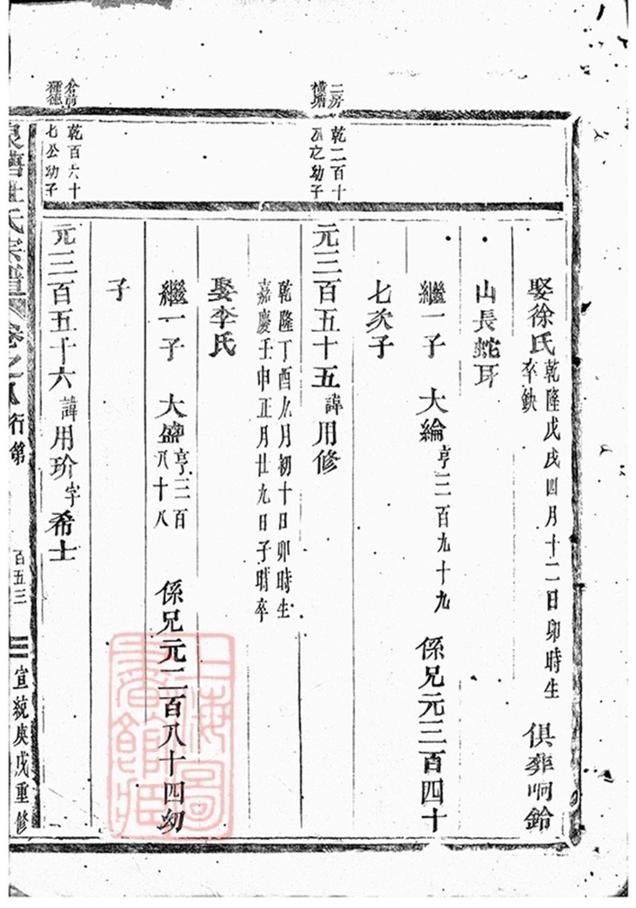 娶徐氏 乾隆戊戌四月十二日卯時生 卒缺 俱葬响鈴
山長蛇耳
繼一子 大綸 亨三百九十九 係兄元三百四十
七次子
二房 橫塘
乾二百十 五之幼子
元三百五十五 諱用修
乾隆丁酉九月初十日卯時生
嘉慶壬申正月廿九日子時卒
娶李氏
繼一子 大盛 亨三百 八十八 係兄元二百八十四幼
子
倉前 種德
乾百六十 七公幼子
元三百五十六 諱用玠 字希士
杜氏宗譜 卷之八 行第 百五三 宣統庚戌重修
上海圖書館藏